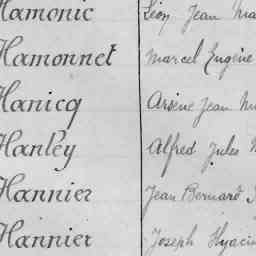 Hamonic Léon Jean Ma
Hamonnet Marcel Eugène
Hanicq Arsène Jean M
Hanley Alfred Jules
Hannier Jean Bernard
Hannier Joseph Hyacin